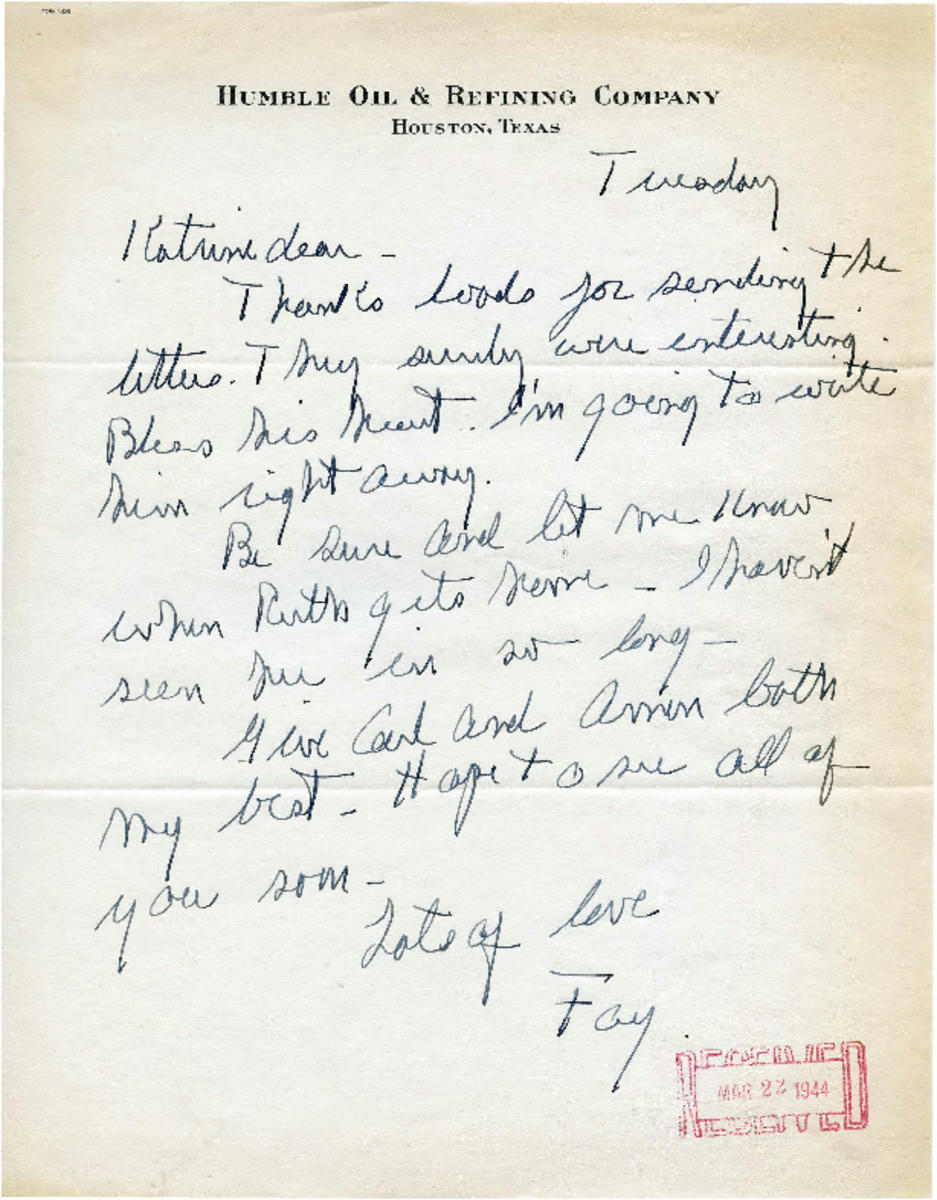 HUMBLE OIL & REFINING COMPANY
HOUSTON, TEXAS
Tuesday
Katrine dear -
Thanks loads for sending the
letters. They surely were interesting.
Bless his heart. I'm going to write
him right away.
Be sure and let me know
when Ruth gets home - I haven't
seen her in so long -
Give Carl and Armin both
my best - Hope to see all of
you soon -
Lots of love
Fay.
RECEIVED
MAR 22 1944
RECEIVED